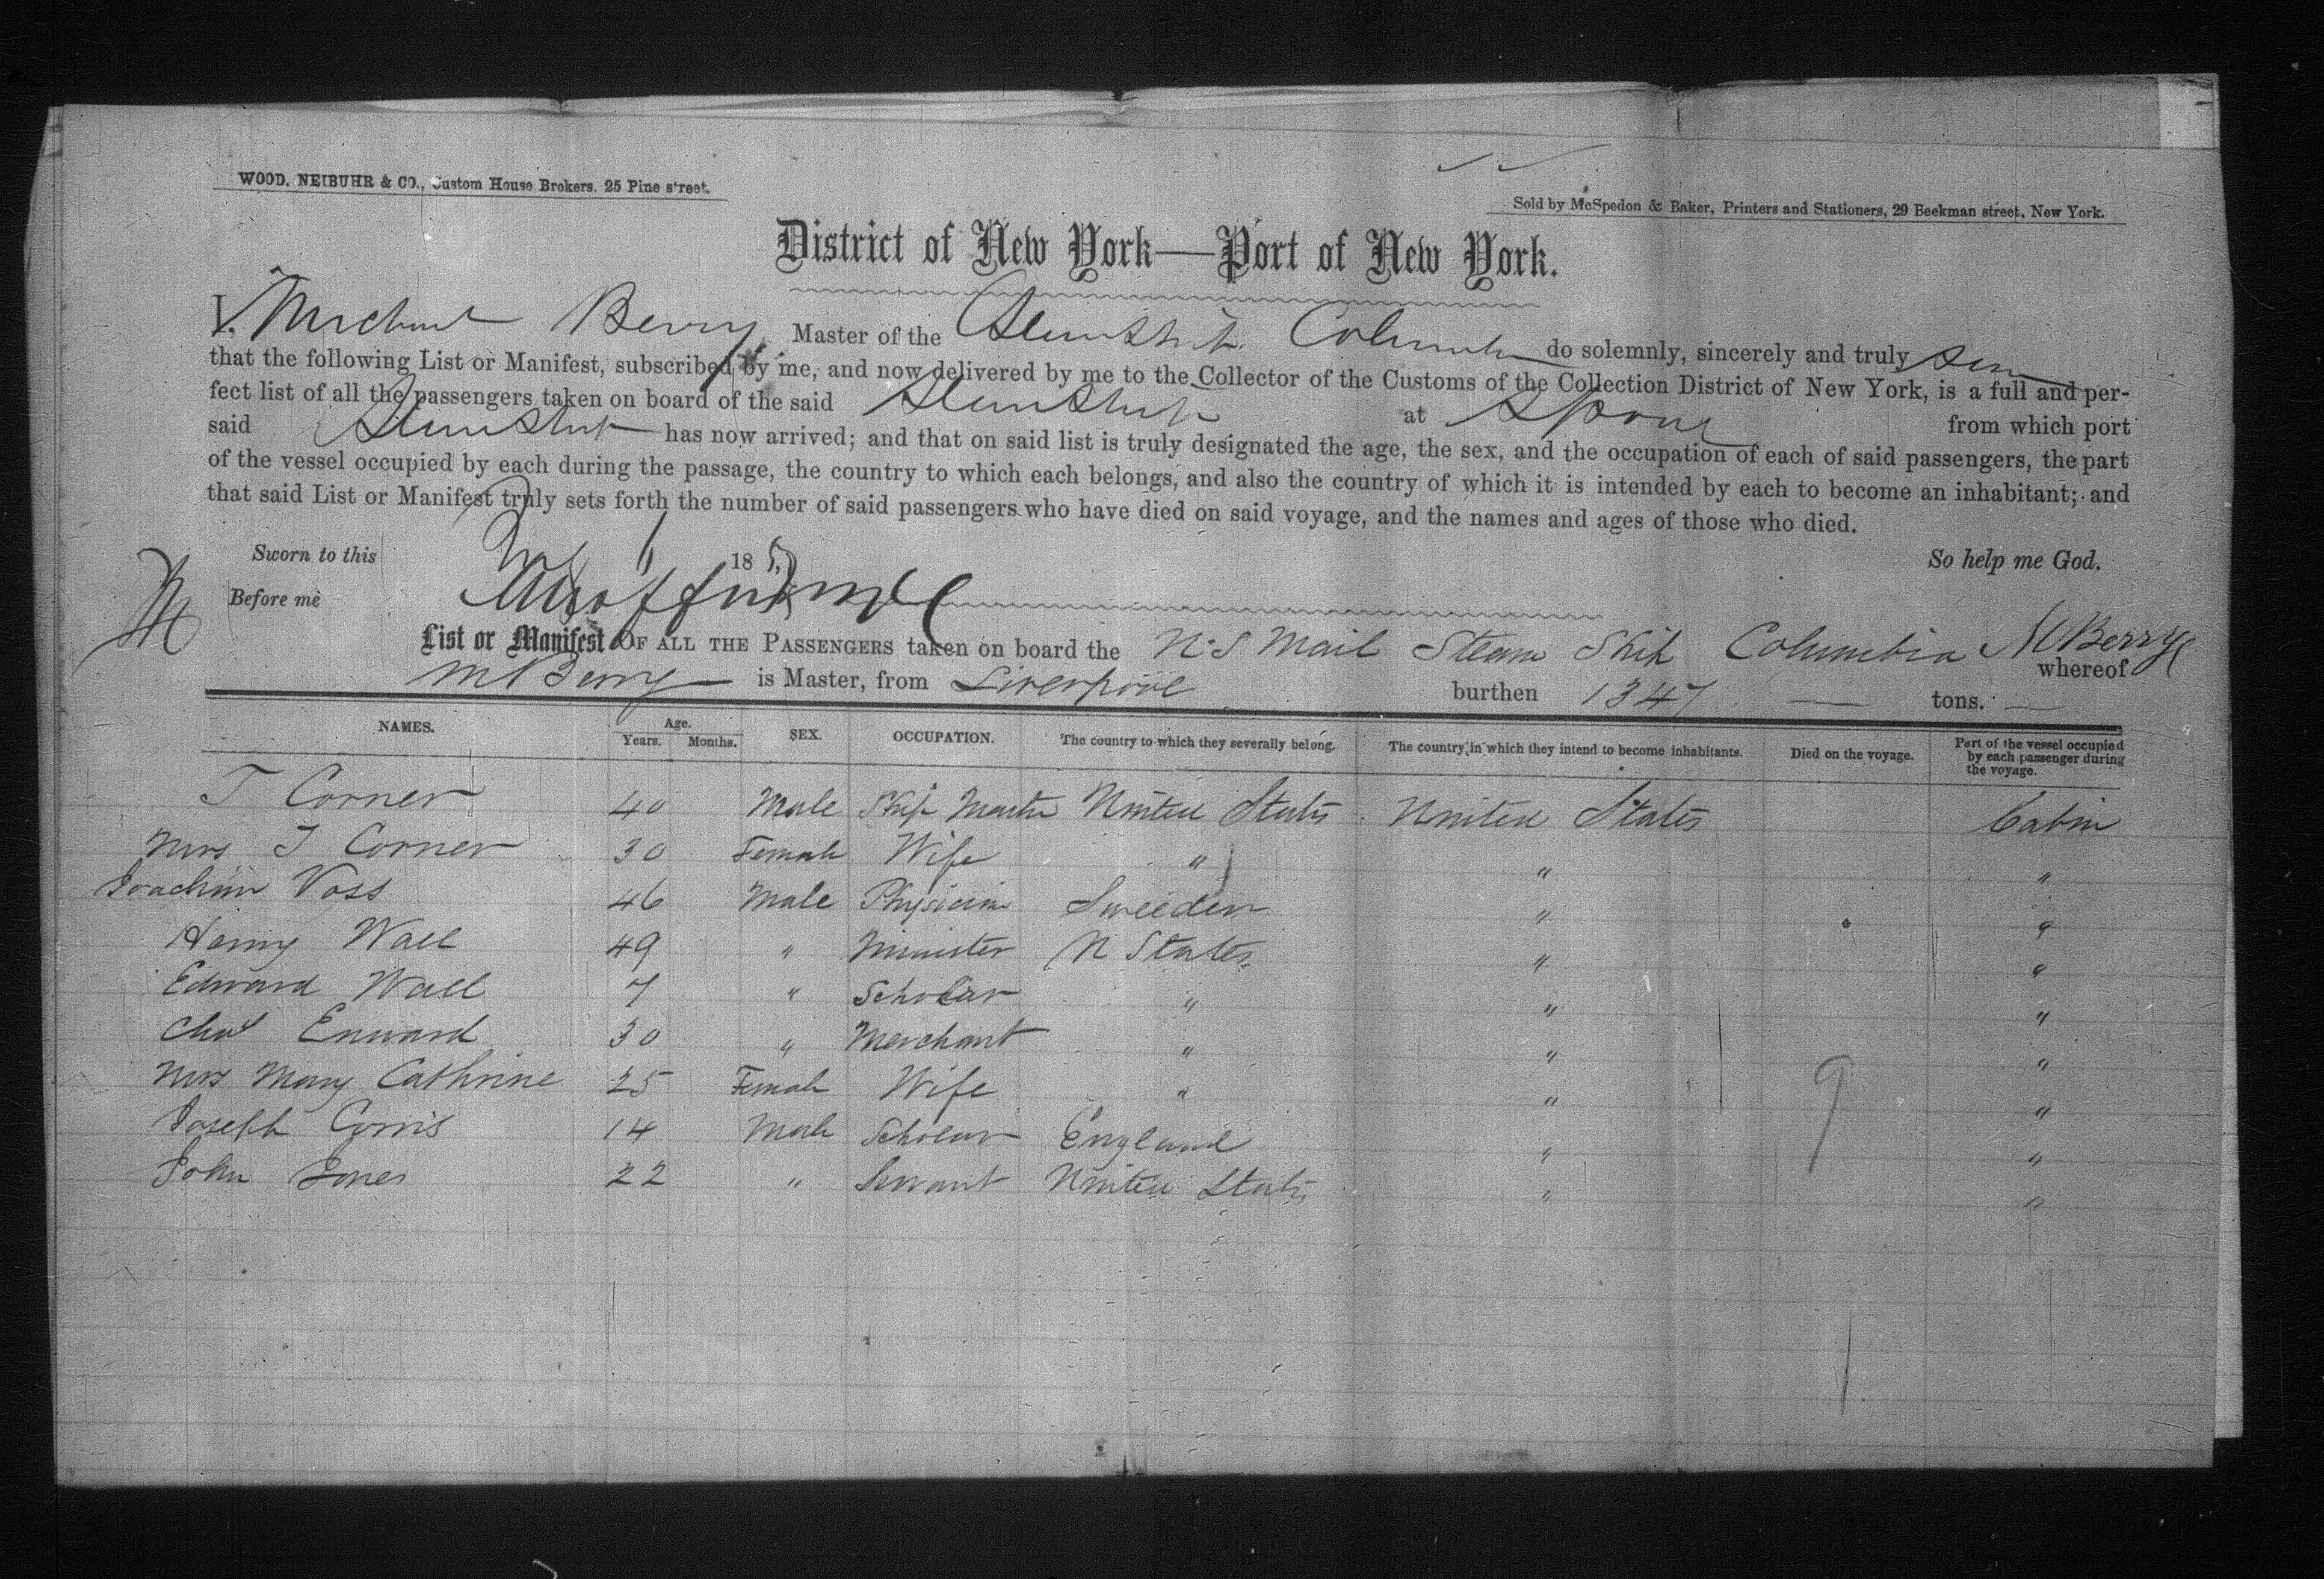 WOOD, NEIBUHR & CO., Custom House Brokers. 25 Pine street.
Sold by McSpedon & Baker, Printers and Stationers, 29 Beekman street, New York.
District of New York—Port of New York.
I, Michael Berry Master of the Steam Ship Columbia do solemnly, sincerely and truly
that the following List or Manifest, subscribed by me, and now delivered by me to the Collector of the Customs of the Collection District of New York, is a full and per-
fect list of all the passengers taken on board of the said Steam Ship at from which port
said Steam Ship has now arrived; and that on said list is truly designated the age, the sex, and the occupation of each of said passengers, the part
of the vessel occupied by each during the passage, the country to which each belongs, and also the country of which it is intended by each to become an inhabitant; and
that said List or Manifest truly sets forth the number of said passengers who have died on said voyage, and the names and ages of those who died.
Sworn to this 185 So help me God.
Before me
List or Manifest OF ALL THE PASSENGERS taken on board the U.S Mail Steam Ship Columbia M Berry whereof
M Berry is Master, from Liverpool burthen 1347 tons.
NAMES. Age. Years. Months. SEX. OCCUPATION. The country to which they severally belong. The country in which they intend to become inhabitants. Died on the voyage. Part of the vessel occupied by each passenger during the voyage.
T Corner 40 Male Ship Master United States United States Cabin
Mrs T Corner 30 Female Wife " " "
Joachim Voss 46 Male Physician Sweeden " "
Henry Wall 49 " Minister U States " "
Edward Wall 7 " Scholar " " "
Chas 30 " Merchant " " "
Mrs Mary Cathrine 25 Female Wife " " "
Joseph Corris 14 Male Scholar England " "
John Jones 22 " Servant United States " "
9